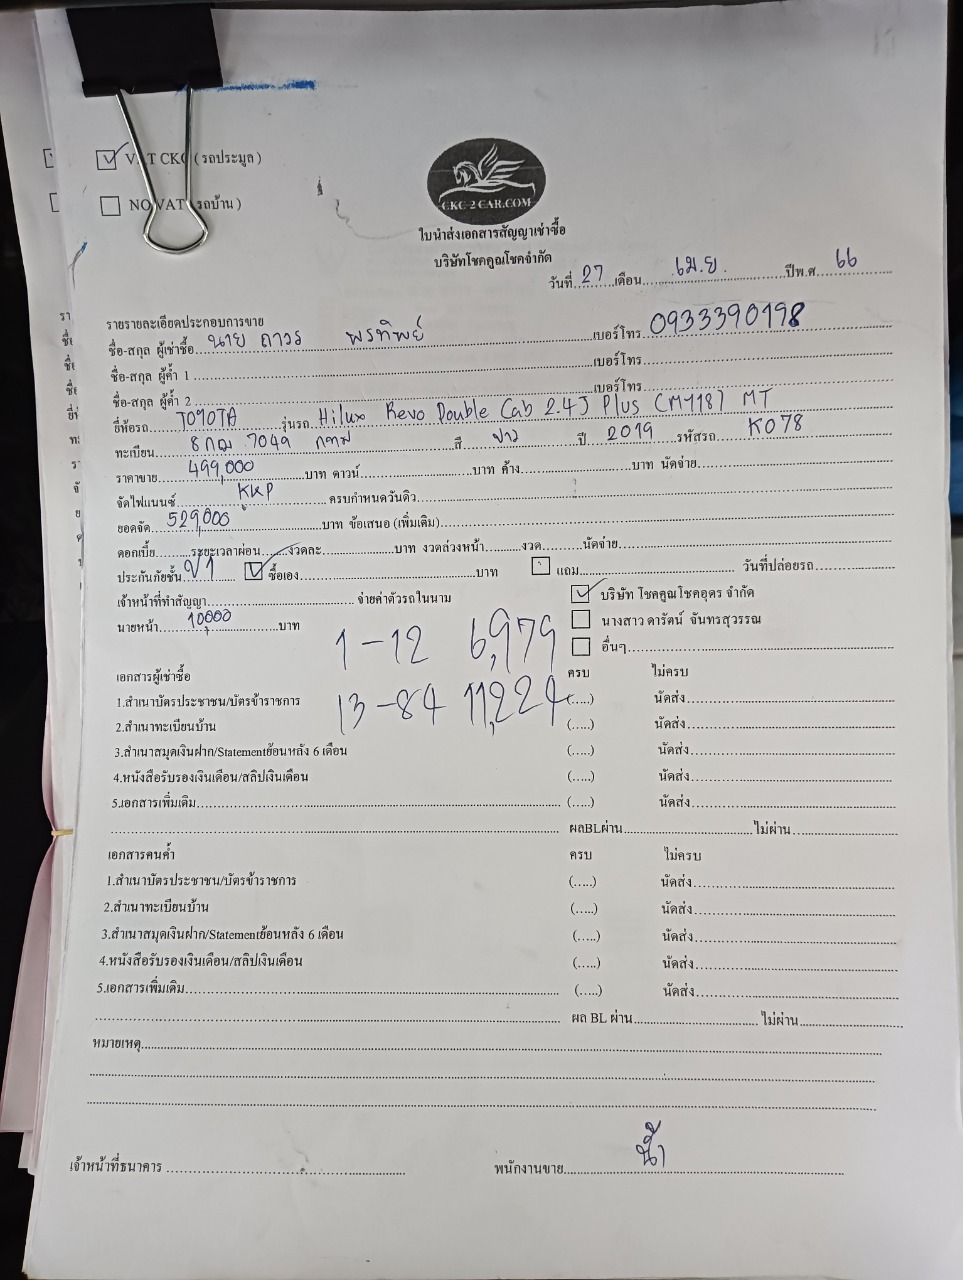 VAT CKC ( รถประมูล )
NO VAT ( รถบ้าน )
CKC 2 CAR.COM
ใบนำส่งเอกสารสัญญาเช่าซื้อ
บริษัทโชคคูณโชคจำกัด
วันที่ 27 เดือน เม.ย. ปีพ.ศ 66
รายรายละเอียดประกอบการขาย
ชื่อ-สกุล ผู้เช่าซื้อ นาย ถาวร พรทิพย์ เบอร์โทร 0933390198
ชื่อ-สกุล ผู้ค้ำ 1 เบอร์โทร
ชื่อ-สกุล ผู้ค้ำ 2 เบอร์โทร
ยี่ห้อรถ TOYOTA รุ่นรถ Hilux Revo Double Cab 2.4J Plus (MY18) MT
ทะเบียน 8กฌ 7049 กทม สี ขาว ปี 2019 รหัสรถ K078
ราคาขาย 499,000 บาท ดาวน์ บาท ค้าง บาท นัดจ่าย
จัดไฟแนนซ์ KKP ครบกำหนดวันดิว
ยอดจัด 529,000 บาท ข้อเสนอ (เพิ่มเติม)
ดอกเบี้ย ระยะเวลาผ่อน งวดละ บาท งวดล่วงหน้า งวด นัดจ่าย
ประกันภัยชั้น ป1 ซื้อเอง บาท แถม วันที่ปล่อยรถ
เจ้าหน้าที่ทำสัญญา จ่ายค่าตัวรถในนาม บริษัท โชคคูณโชคอุดร จำกัด
นายหน้า 10,000 บาท นางสาว ดารัตน์ จันทรสุวรรณ
อื่นๆ
1-12 6,979
13-84 11,224
เอกสารผู้เช่าซื้อ ครบ ไม่ครบ
1.สำเนาบัตรประชาชน/บัตรข้าราชการ (.....) นัดส่ง
2.สำเนาทะเบียนบ้าน (.....) นัดส่ง
3.สำเนาสมุดเงินฝาก/Statementย้อนหลัง 6 เดือน (.....) นัดส่ง
4.หนังสือรับรองเงินเดือน/สลิปเงินเดือน (.....) นัดส่ง
5.เอกสารเพิ่มเติม (.....) นัดส่ง
ผลBLผ่าน ไม่ผ่าน
เอกสารคนค้ำ ครบ ไม่ครบ
1.สำเนาบัตรประชาชน/บัตรข้าราชการ (.....) นัดส่ง
2.สำเนาทะเบียนบ้าน (.....) นัดส่ง
3.สำเนาสมุดเงินฝาก/Statementย้อนหลัง 6 เดือน (.....) นัดส่ง
4.หนังสือรับรองเงินเดือน/สลิปเงินเดือน (.....) นัดส่ง
5.เอกสารเพิ่มเติม (.....) นัดส่ง
ผล BL ผ่าน ไม่ผ่าน
หมายเหตุ
เจ้าหน้าที่ธนาคาร พนักงานขาย น้ำ